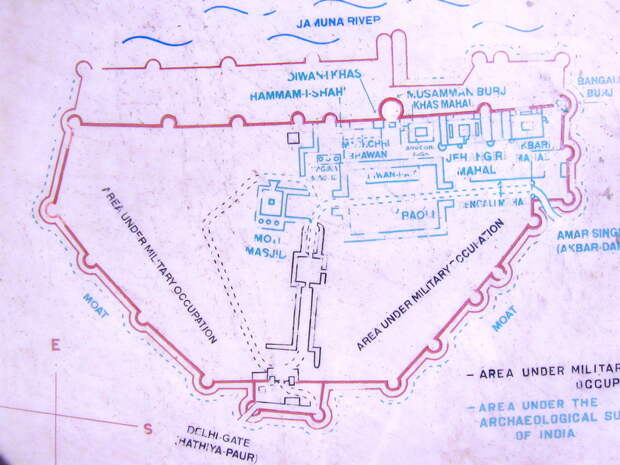 JAMUNA RIVER
DIWAN-I-KHAS
HAMMAM-I-SHAHI
MUSAMMAN BURJ
KHAS MAHAL
BANGALI
BURJ
BHAWAN
JEHANGIRI
MAHAL
AKBARI
MAHAL
BAOLI
BENGALI MAHAL
MOTI
MASJID
AMAR SING
(AKBAR-DAR
AREA UNDER MILITARY OCCUPATION
AREA UNDER MILITARY OCCUPATION
MOAT
MOAT
E
S
DELHI-GATE
(HATHIYA-PAUR)
- AREA UNDER MILITA
OCCUP
- AREA UNDER THE
ARCHAEOLOGICAL SU
OF INDIA